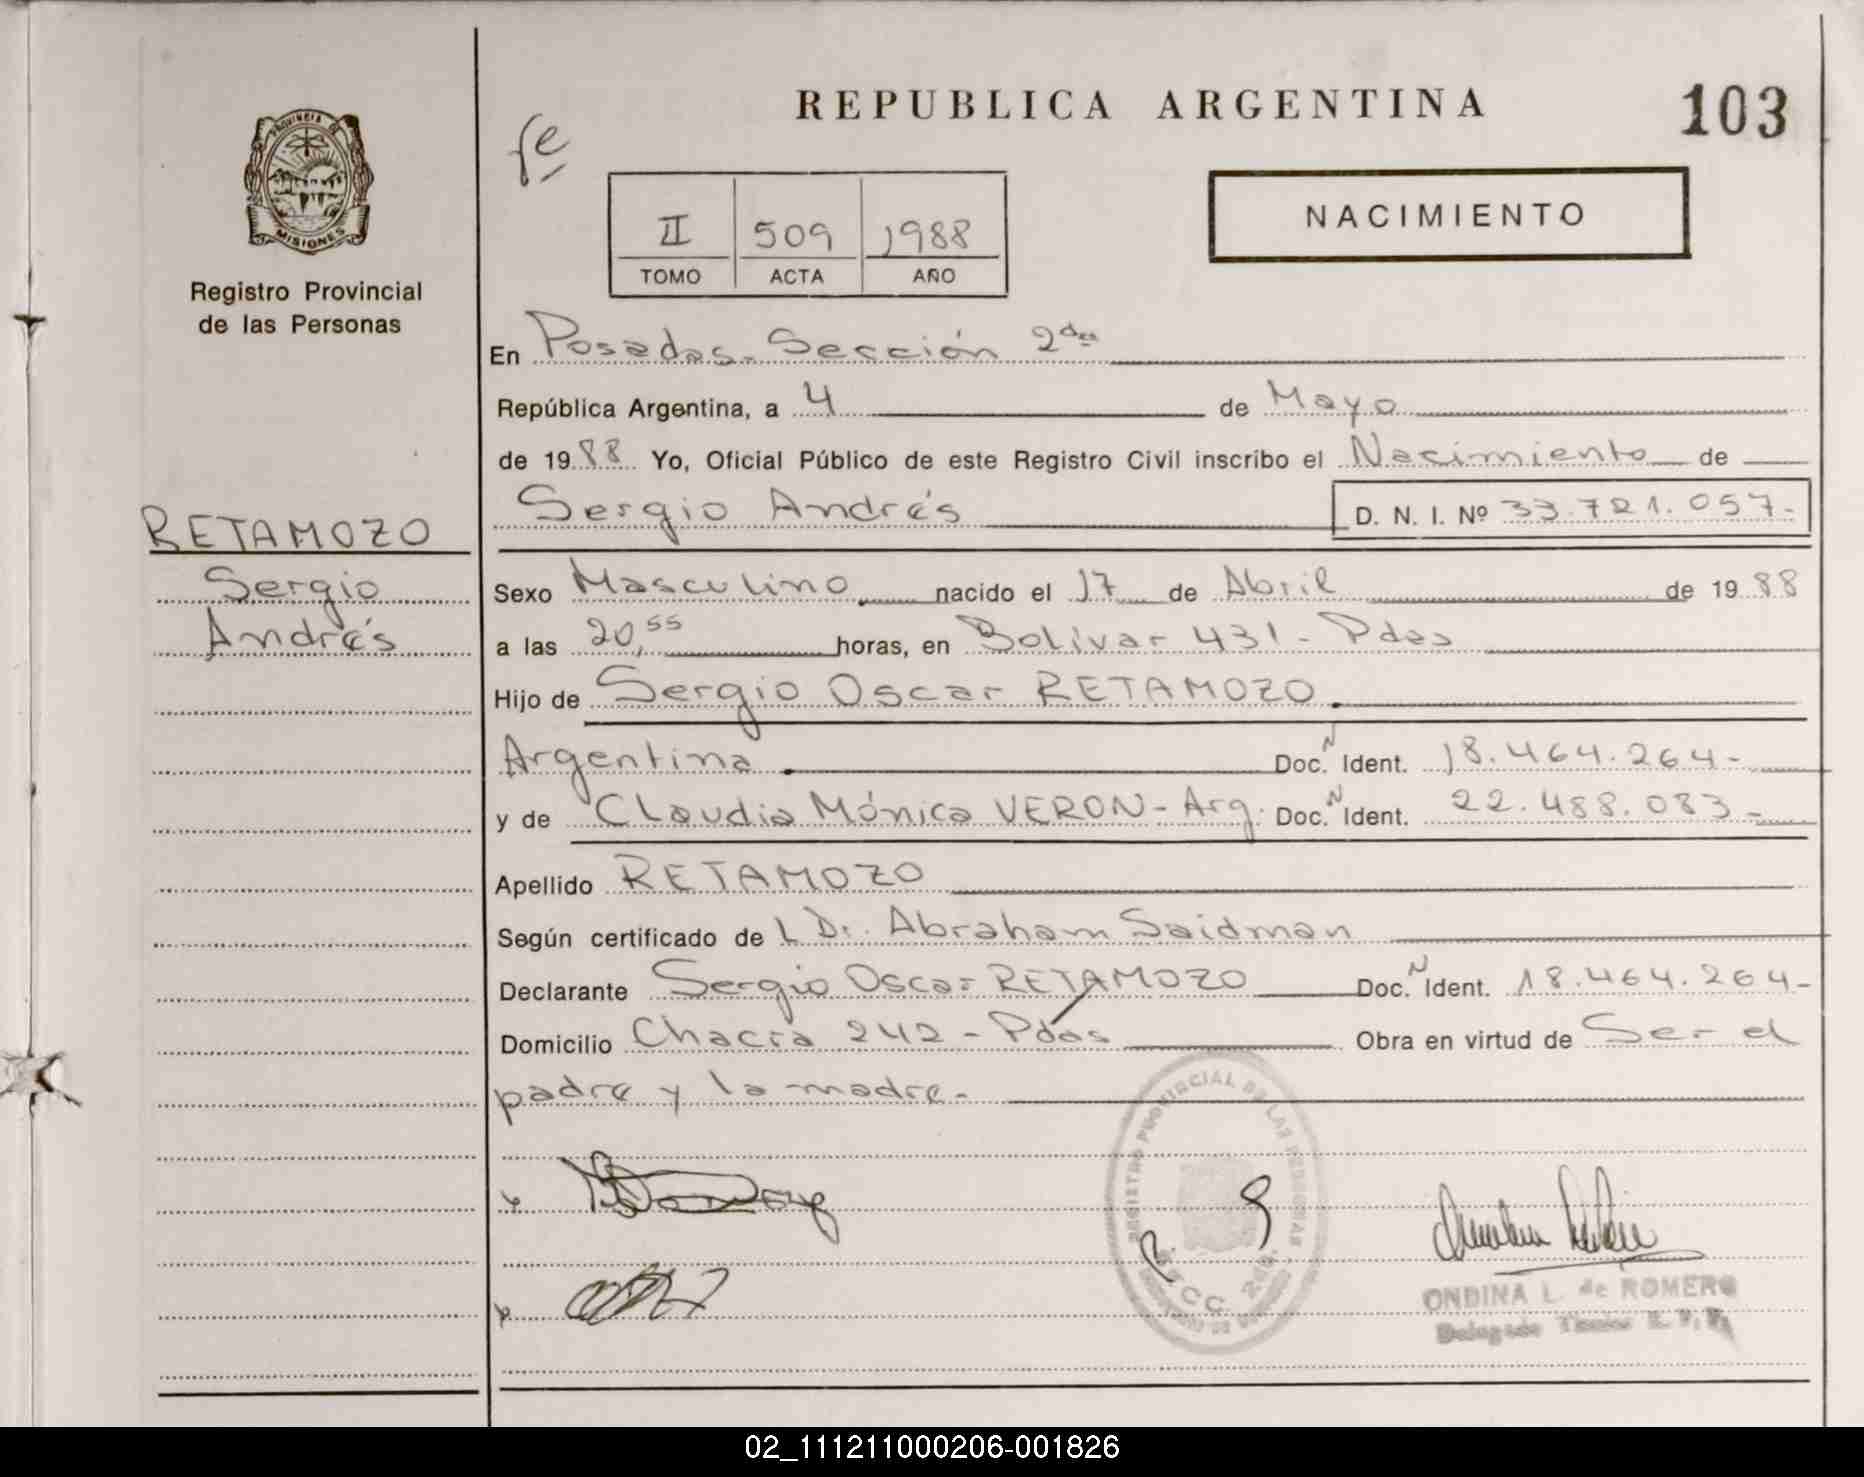 REPUBLICA ARGENTINA
103
PROVINCIA DE
MISIONES
Registro Provincial
de las Personas
II 509 1988
TOMO ACTA AÑO
NACIMIENTO
En Posadas - Sección 2da
República Argentina, a 4 de Mayo
de 1988 Yo, Oficial Público de este Registro Civil inscribo el Nacimiento de
Sergio Andrés D. N. I. Nº 33.721.057.-
RETAMOZO
Sergio
Andrés
Sexo Masculino nacido el 17 de Abril de 1988
a las 20,55 horas, en Bolívar 431 - Pdas
Hijo de Sergio Oscar RETAMOZO
Argentina Doc. N Ident. 18.464.264-
y de Claudia Mónica VERON - Arg. Doc. N Ident. 22.488.083-
Apellido RETAMOZO
Según certificado de L Dr. Abraham Saidman
Declarante Sergio Oscar RETAMOZO Doc. N Ident. 18.464.264-
Domicilio Chacra 242 - Pdas Obra en virtud de Ser el
padre y la madre.-
REGISTRO PROVINCIAL DE LAS PERSONAS
SECC. 2da.
ONDINA L. de ROMERO
Delegado Técnico R. P. P.
02_111211000206-001826